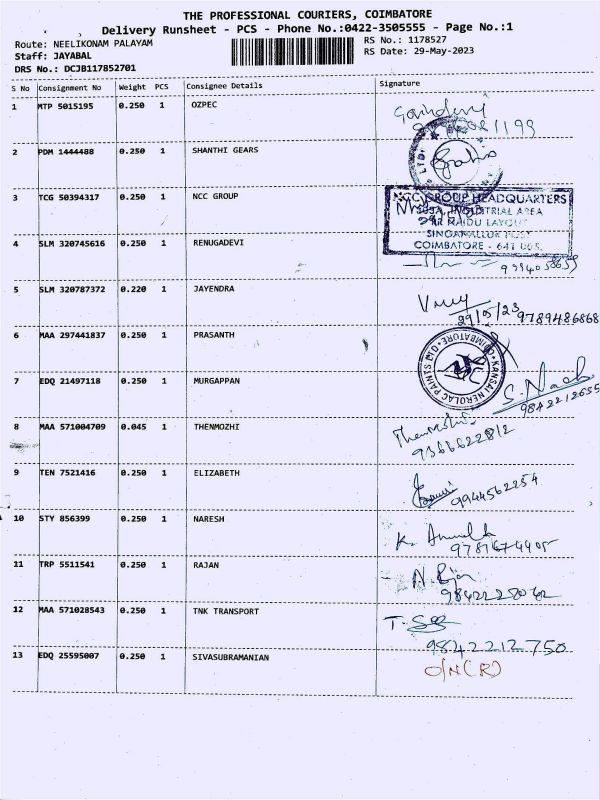 THE PROFESSIONAL COURIERS, COIMBATORE
Delivery Runsheet - PCS - Phone No.:0422-3505555 - Page No.:1
Route: NEELIKONAM PALAYAM
RS No.: 1178527
Staff: JAYABAL
RS Date: 29-May-2023
DRS No.: DCJB117852701
S No Consignment No Weight PCS Consignee Details Signature
1 MTP 5015195 0.250 1 OZPEC
2 PDM 1444488 0.250 1 SHANTHI GEARS
3 TCG 50394317 0.250 1 NCC GROUP
NCC GROUP HEADQUARTERS
INDUSTRIAL AREA
NAIDU LAYOUT
SINGANALLUR POST
COIMBATORE - 641 005.
4 SLM 320745616 0.250 1 RENUGADEVI
5 SLM 320787372 0.220 1 JAYENDRA
29/5/23 9789486868
6 MAA 297441837 0.250 1 PRASANTH
KANSAI NEROLAC PAINTS LTD
COIMBATORE
7 EDQ 21497118 0.250 1 MURGAPPAN
9842212655
8 MAA 571004709 0.045 1 THENMOZHI
9 TEN 7521416 0.250 1 ELIZABETH
9944562254
10 STY 856399 0.250 1 NARESH
11 TRP 5511541 0.250 1 RAJAN
12 MAA 571028543 0.250 1 TNK TRANSPORT
9842212750
13 EDQ 25595007 0.250 1 SIVASUBRAMANIAN
O/N(R)